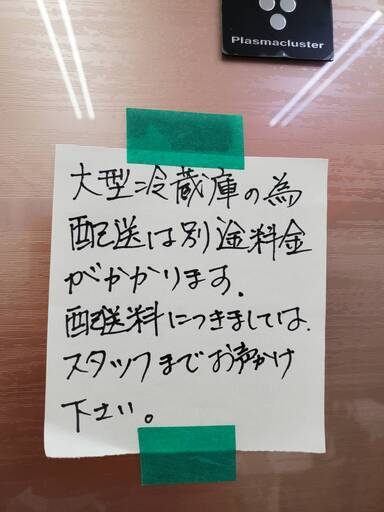 Plasmacluster
大型冷蔵庫の為
配送は別途料金
がかかります.
配送料につきましては.
スタッフまでお声かけ
下さい。